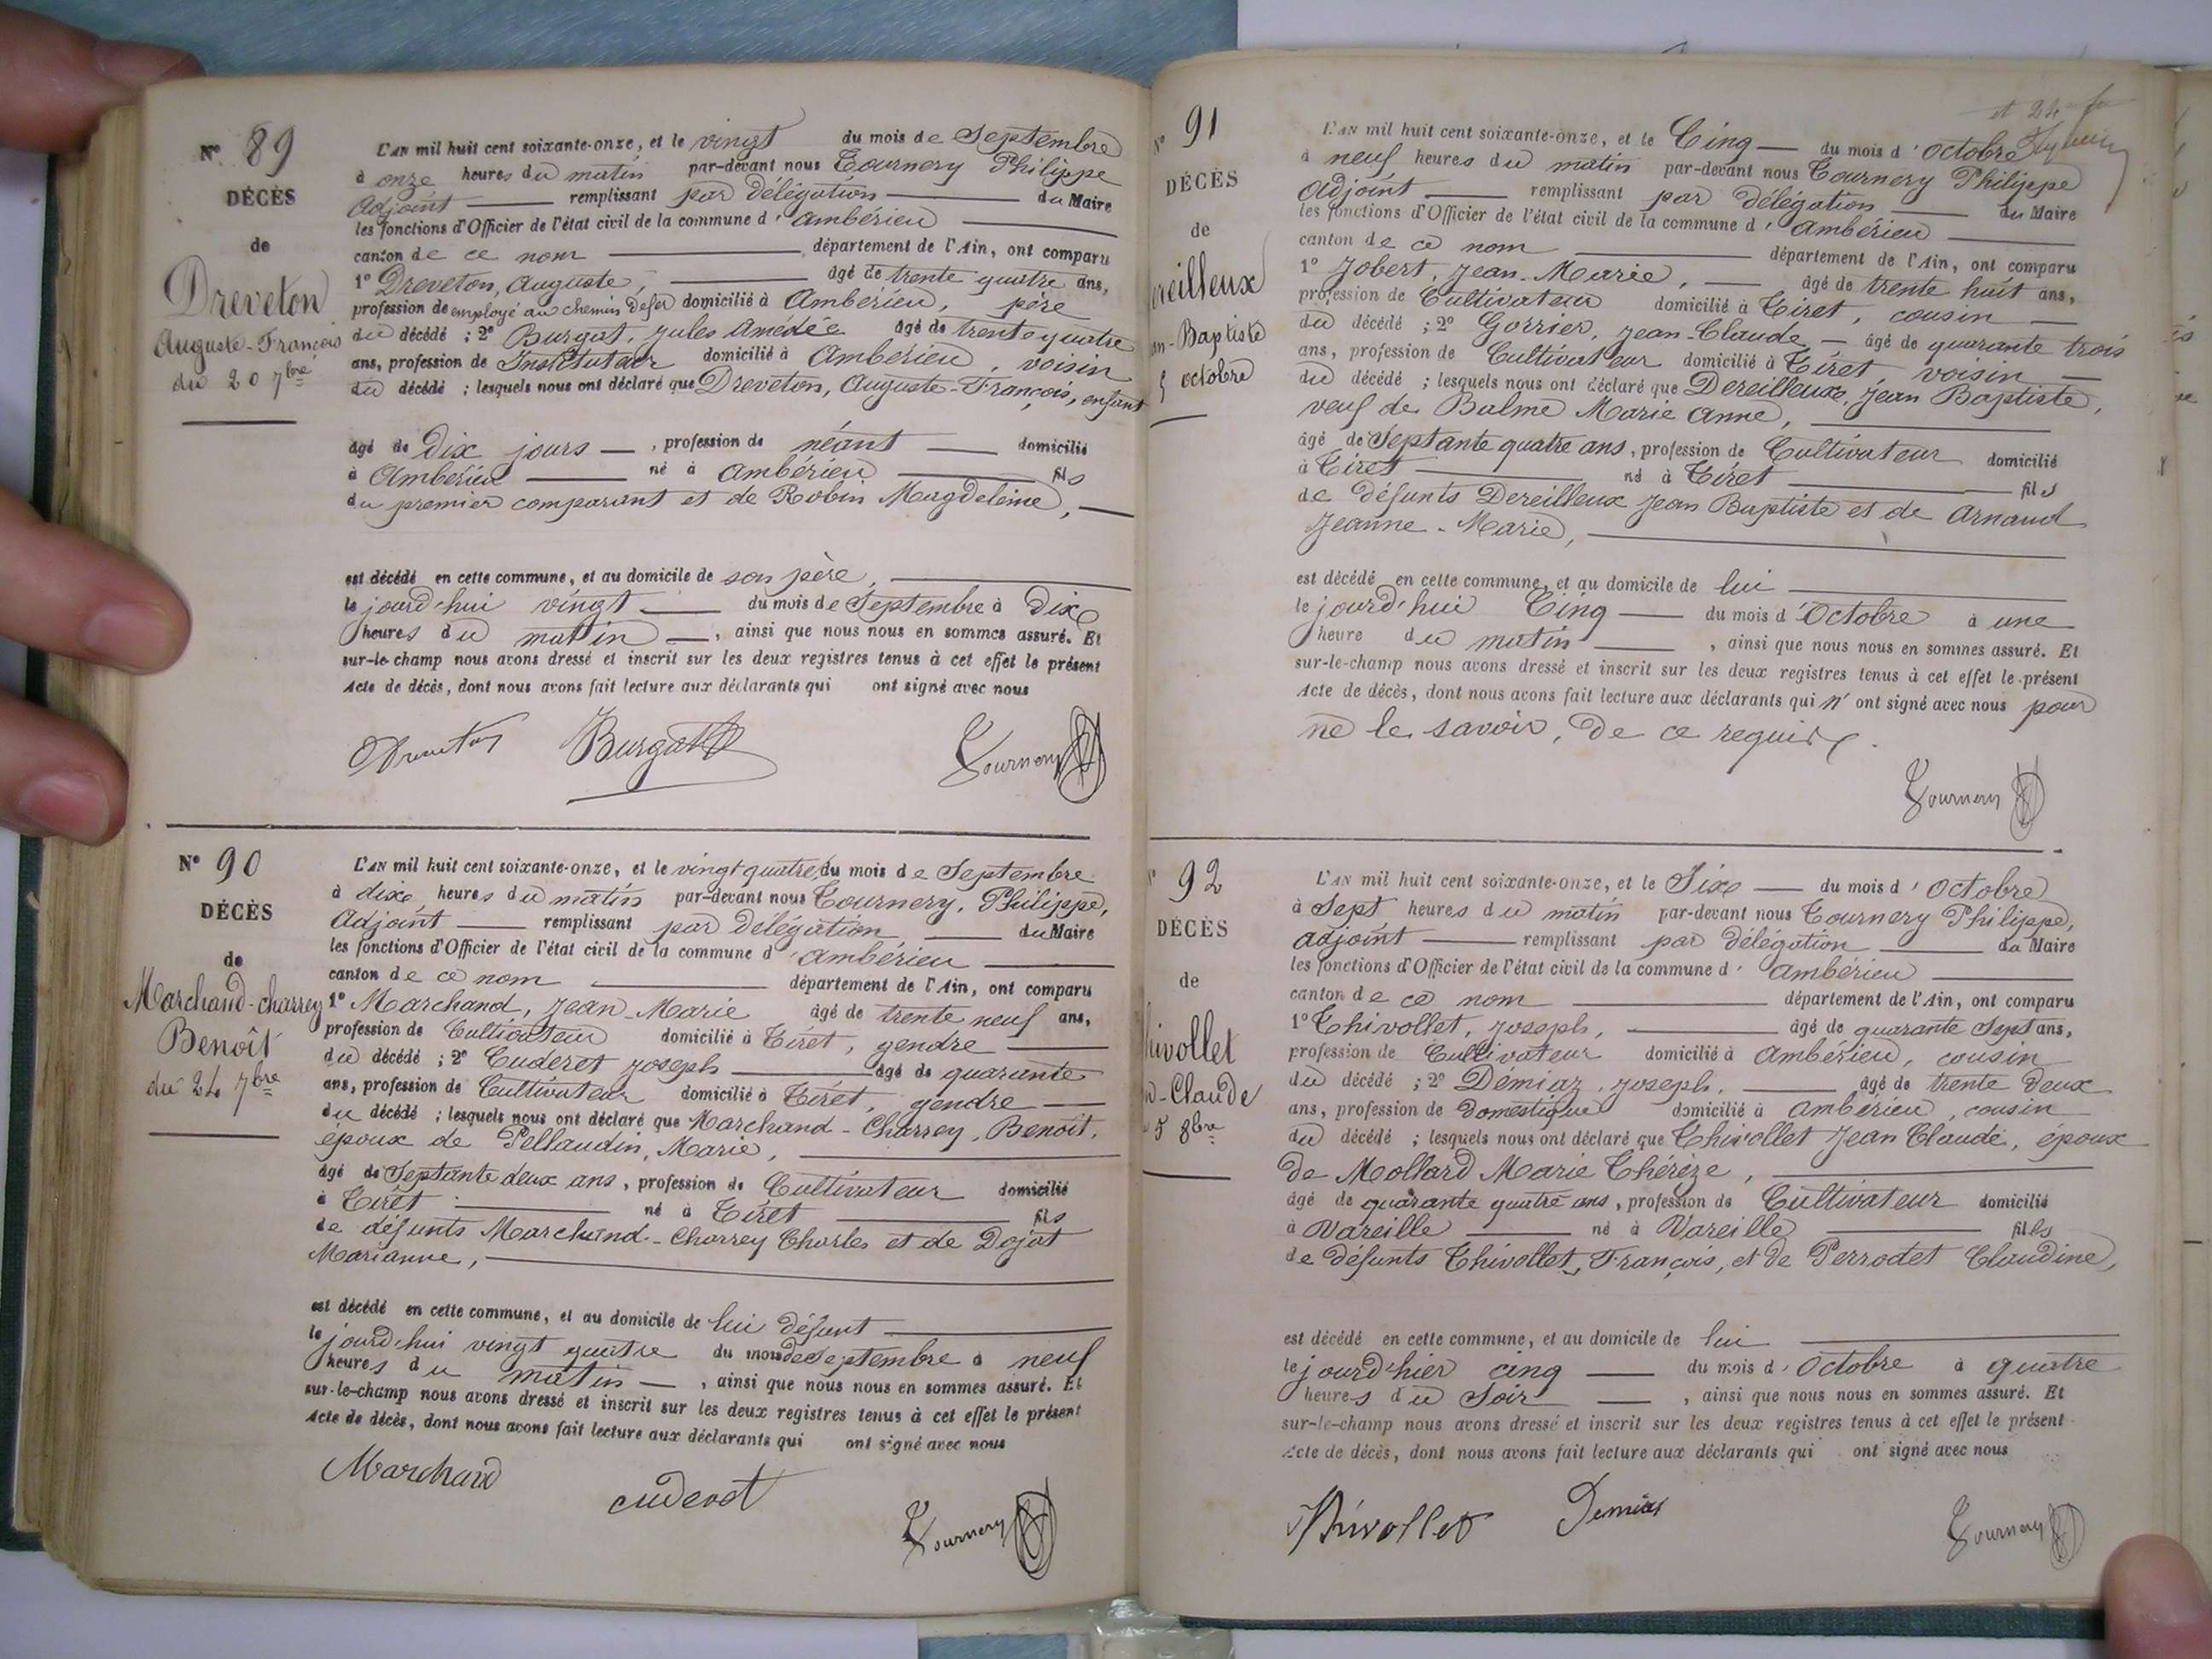 Nº 89
DÉCÈS
de
Dreveton
Auguste-François
du 20 7bre
L'AN mil huit cent soixante-onze, et le vingt du mois de Septembre
à onze heures du matin par-devant nous Tournery Philippe
Adjoint remplissant par Délégation du Maire
les fonctions d'Officier de l'état civil de la commune d'Ambérieu
canton de ce nom département de l'Ain, ont comparu
1º Dreveton, Auguste, âgé de trente quatre ans,
profession de employé au chemin de fer domicilié à Ambérieu, père
du décédé ; 2º Burgat, Jules Amédée âgé de trente quatre
ans, profession de Instituteur domicilié à Ambérieu, voisin
du décédé ; lesquels nous ont déclaré que Dreveton, Auguste-François, enfant
âgé de Dix jours, profession de néant domicilié
à Ambérieu né à Ambérieu fils
du premier comparant et de Robin Magdeleine,
est décédé en cette commune, et au domicile de son père,
le jourd'hui vingt du mois de Septembre à Dix
heures du matin, ainsi que nous nous en sommes assuré. Et
sur-le-champ nous avons dressé et inscrit sur les deux registres tenus à cet effet le présent
Acte de décès, dont nous avons fait lecture aux déclarants qui ont signé avec nous
Dreveton Burgat Tournery
Nº 90
DÉCÈS
de
Marchand-charrey
Benoît
du 24 7bre
L'AN mil huit cent soixante-onze, et le vingt quatre du mois de Septembre
à dix heures du matin par-devant nous Tournery, Philippe,
Adjoint remplissant par Délégation du Maire
les fonctions d'Officier de l'état civil de la commune d'Ambérieu
canton de ce nom département de l'Ain, ont comparu
1º Marchand, Jean-Marie âgé de trente neuf ans,
profession de Cultivateur domicilié à Tiret, gendre
du décédé ; 2º Cuderet Joseph âgé de quarante
ans, profession de Cultivateur domicilié à Tiret, gendre
du décédé ; lesquels nous ont déclaré que Marchand-Charrey, Benoît,
époux de Pellaudin, Marie,
âgé de Septante deux ans, profession de Cultivateur domicilié
à Tiret né à Tiret fils
de défunts Marchand-Charrey Charles et de Dojat
Marianne,
est décédé en cette commune, et au domicile de lui défunt
le jourd'hui vingt quatre du mois de Septembre à neuf
heures du matin, ainsi que nous nous en sommes assuré. Et
sur-le-champ nous avons dressé et inscrit sur les deux registres tenus à cet effet le présent
Acte de décès, dont nous avons fait lecture aux déclarants qui ont signé avec nous
Marchand cuderet Tournery
et 24
Nº 91
DÉCÈS
de
reilleux
an-Baptiste
5 octobre
L'AN mil huit cent soixante-onze, et le Cinq du mois d'Octobre
à neuf heures du matin par-devant nous Tournery Philippe
Adjoint remplissant par Délégation du Maire
les fonctions d'Officier de l'état civil de la commune d'Ambérieu
canton de ce nom département de l'Ain, ont comparu
1º Jobert, Jean-Marie, âgé de trente huit ans,
profession de Cultivateur domicilié à Tiret, cousin
du décédé ; 2º Gorrier, Jean-Claude, âgé de quarante trois
ans, profession de Cultivateur domicilié à Tiret, voisin
du décédé ; lesquels nous ont déclaré que Dereilleux, Jean Baptiste,
veuf de Balme Marie Anne,
âgé de Septante quatre ans, profession de Cultivateur domicilié
à Tiret né à Tiret fils
de défunts Dereilleux Jean Baptiste et de Arnaud
Jeanne-Marie,
est décédé en cette commune, et au domicile de lui
le jourd'hui Cinq du mois d'Octobre à une
heure du matin, ainsi que nous nous en sommes assuré. Et
sur-le-champ nous avons dressé et inscrit sur les deux registres tenus à cet effet le présent
Acte de décès, dont nous avons fait lecture aux déclarants qui n'ont signé avec nous pour
ne le savoir, De ce requis.
Tournery
92
DÉCÈS
de
hivollet
n-Claude
5 8bre
L'AN mil huit cent soixante-onze, et le Six du mois d'Octobre
à Sept heures du matin par-devant nous Tournery Philippe,
adjoint remplissant par Délégation du Maire
les fonctions d'Officier de l'état civil de la commune d'Ambérieu
canton de ce nom département de l'Ain, ont comparu
1º Thivollet, Joseph, âgé de quarante Sept ans,
profession de Cultivateur domicilié à Ambérieu, cousin
du décédé ; 2º Démiaz, Joseph, âgé de trente Deux
ans, profession de Domestique domicilié à Ambérieu, cousin
du décédé ; lesquels nous ont déclaré que Thivollet Jean Claude, époux
de Mollard Marie Thérèze,
âgé de quarante quatre ans, profession de Cultivateur domicilié
à Vareille né à Vareille fils
de défunts Thivollet, François, et de Perrodet Claudine,
est décédé en cette commune, et au domicile de lui
le jourd'hier cinq du mois d'Octobre à quatre
heures du Soir, ainsi que nous nous en sommes assuré. Et
sur-le-champ nous avons dressé et inscrit sur les deux registres tenus à cet effet le présent
Acte de décès, dont nous avons fait lecture aux déclarants qui ont signé avec nous
Thivollet Demiaz Tournery